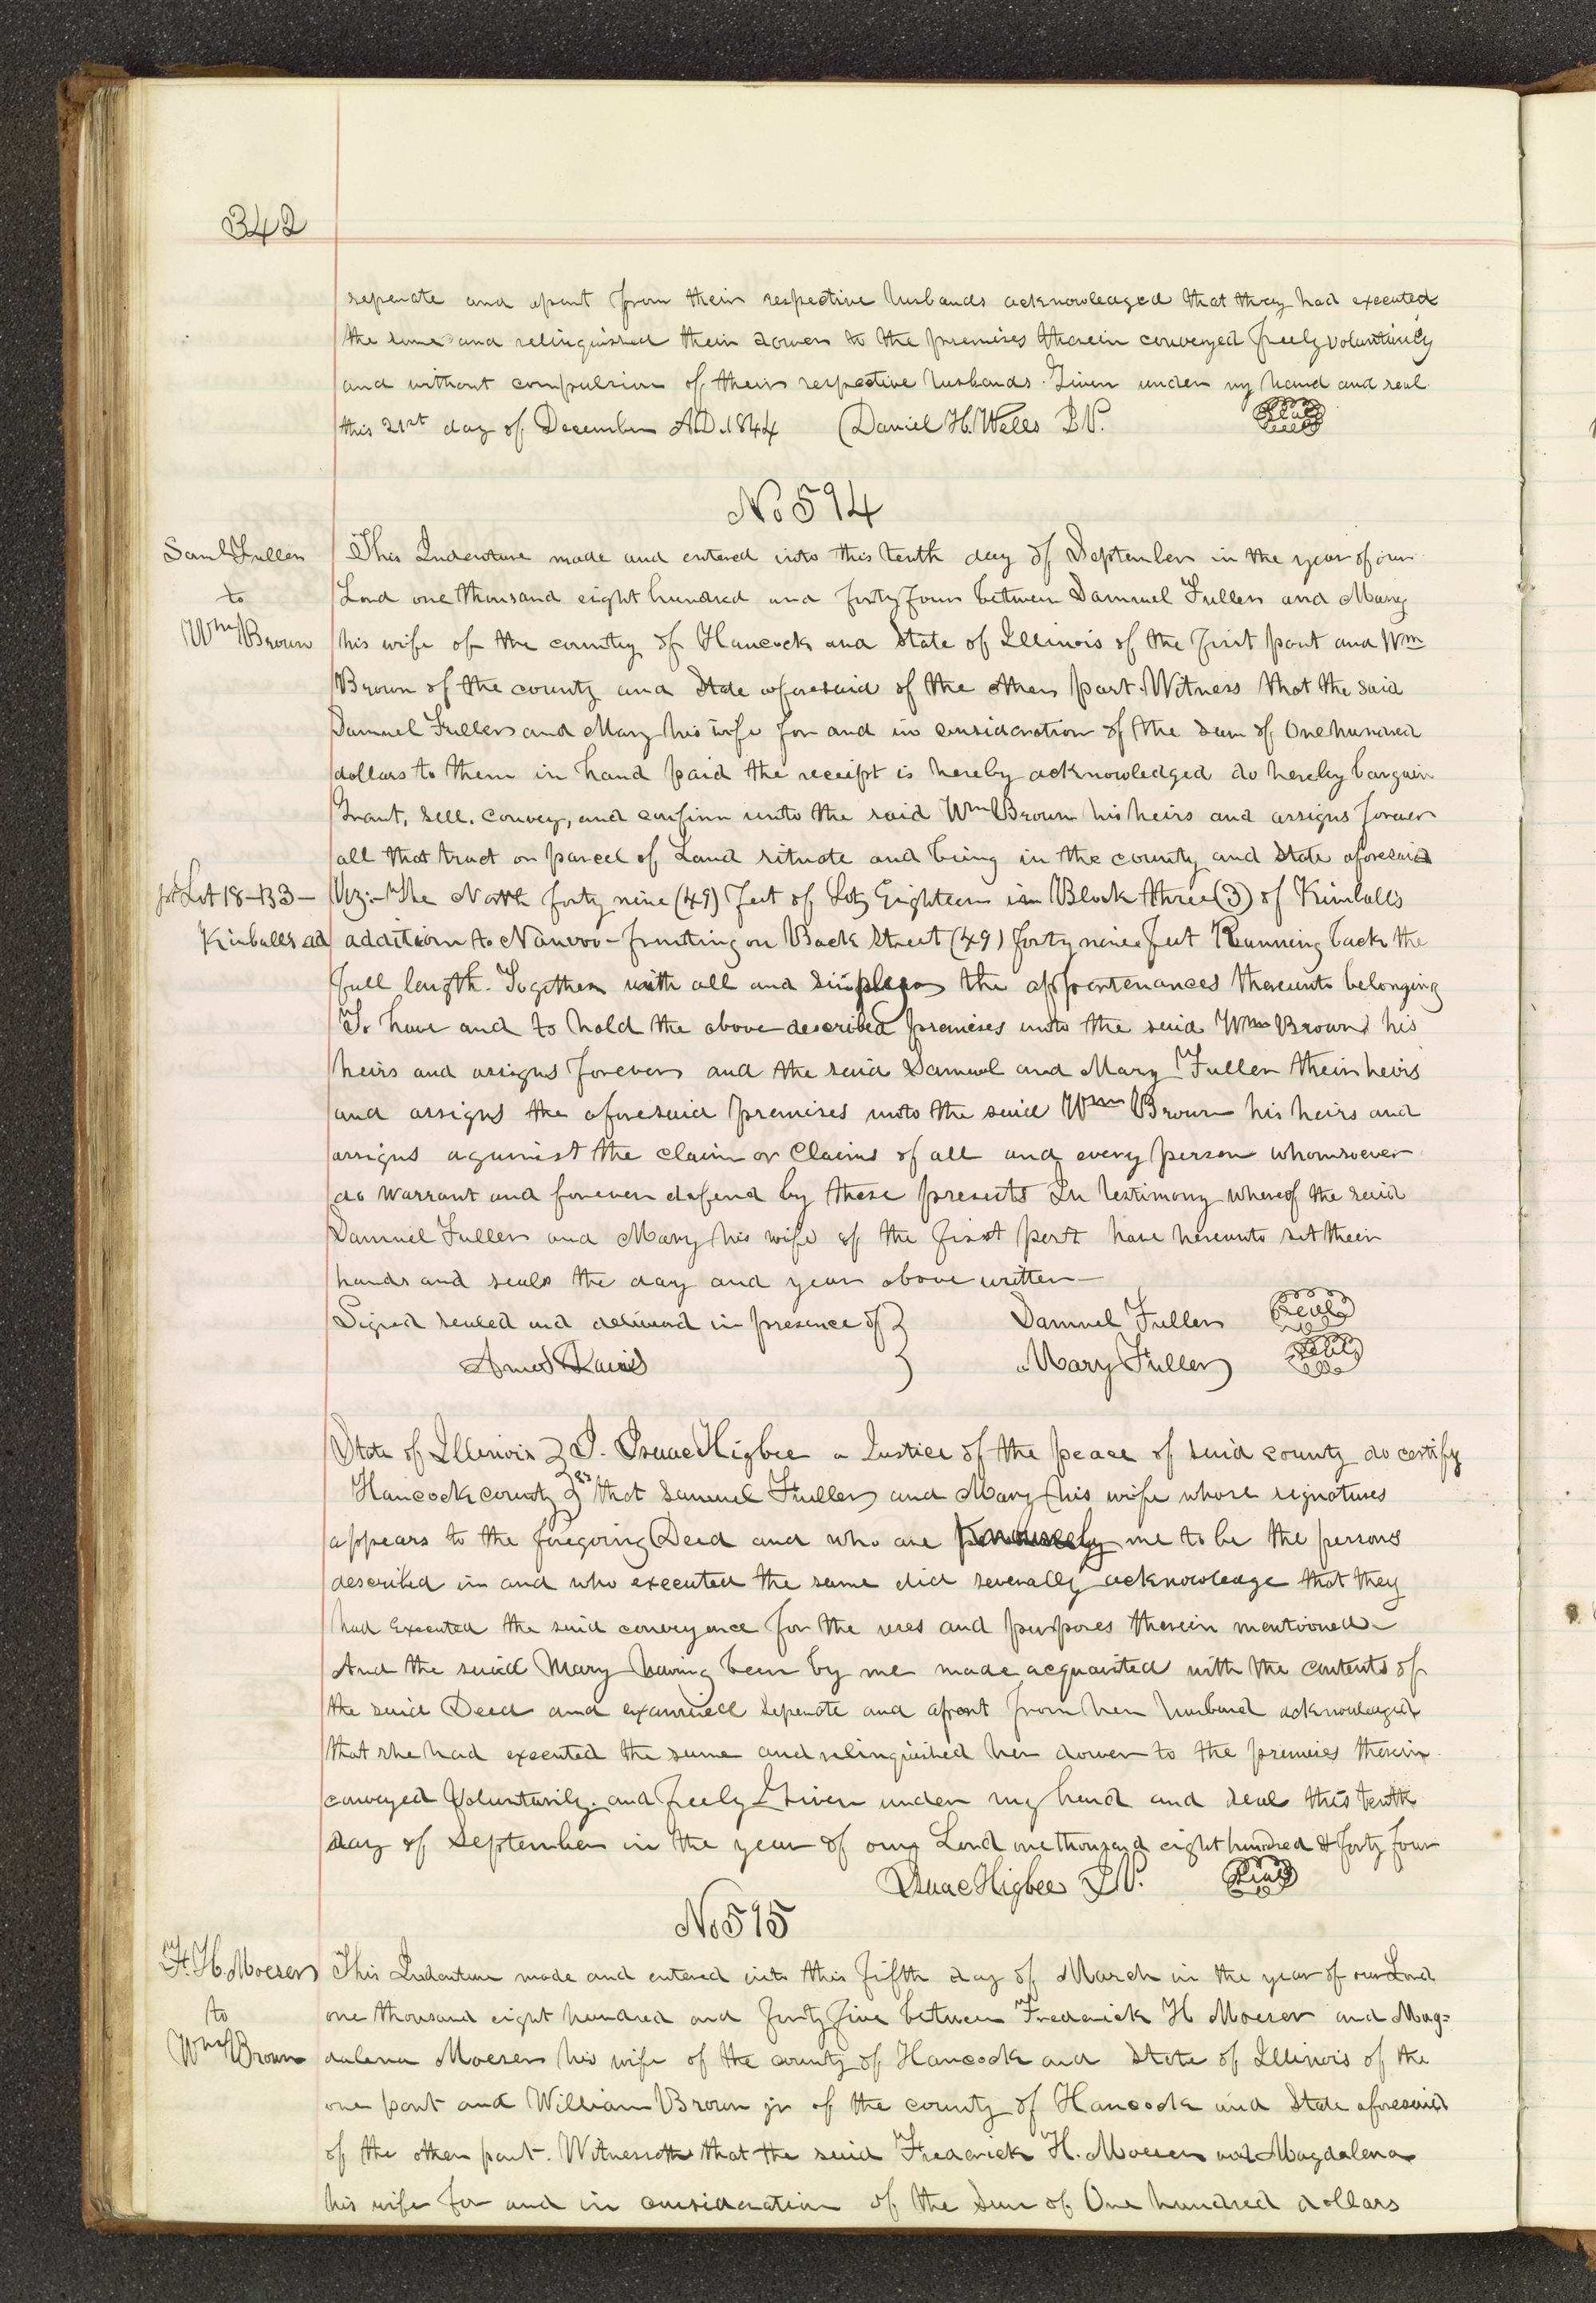 342
seperate and apart from their respective husbands acknowledged that they had executed
the same and relinquished their dower to the premises therein conveyed freely voluntarily
and without compulsion of their respective husbands. Given under my hand and seal
this 21st day of December A.D. 1844 Daniel H. Wells J.P. Seal
No 594
Saml Fuller
to
Wm Brown
This Indenture made and entered into this tenth day of September in the year of our
Lord one thousand eight hundred and forty four between Samuel Fuller and Mary
his wife of the county of Hancock and State of Illinois of the first part and Wm
Brown of the county and State aforesaid of the other part. Witness that the said
Samuel Fuller and Mary his wife for and in consideration of the sum of One hundred
dollars to them in hand paid the receipt is hereby acknowledged do hereby bargain
Grant, sell. convey, and confirm unto the said Wm Brown his heirs and assigns forever
all that tract or parcel of Land situate and being in the county and State aforesaid
pt Lot 18-B3-
Kimballs ad
Viz:- The North forty nine (49) feet of Lot Eighteen in Block three (3) of Kimballs
addition to Nauvoo - fronting on Back Street (49) forty nine feet Running back the
full length. Together with all and the appertenances thereunto belonging
To have and to hold the above described premises unto the said Wm Brown his
heirs and assigns forever and the said Samuel and Mary Fuller their heirs
and assigns the aforesaid premises unto the said Wm Brown his heirs and
assigns against the claim or Claims of all and every person whomsoever
do warrant and forever defend by these presents In testimony whereof the said
Samuel Fuller and Mary his wife of the first part have hereunto set their
hands and seals the day and year above written-
Signed sealed and delivered in presence of } Samuel Fuller Seal
Amos } Mary Fuller Seal
State of Illinois } I. Isaac Higbee a Justice of the peace of said county do certify
Hancock county } ss that Samuel Fuller and Mary his wife whose signatures
appears to the foregoing Deed and who are me to be the persons
described in and who executed the same did severally acknowledge that they
had Executed the said conveyance for the uses and purposes therein mentioned-
And the said Mary having been by me made acquainted with the contents of
the said Deed and examined seperate and apart from her husband acknowledged
that she had executed the same and relinquished her dower to the premises therein
conveyed Voluntarily. and freely Given under my hand and seal this tenth
day of September in the year of our Lord one thousand eight hundred & forty four
Isaac Higbee J.P. Seal
No 595
F. H. Moeser
to
Wm Brown
This Indenture made and entered into this fifth day of March in the year of our Lord
one thousand eight hundred and forty five between Frederick H Moeser and Mag=
dalena Moeser his wife of the county of Hancock and State of Illinois of the
one part and William Brown jr of the county of Hancock and State aforesaid
of the other part. Witnesseth that the said Frederick H. Moeser and Magdalena
his wife for and in consideration of the sum of One hundred dollars